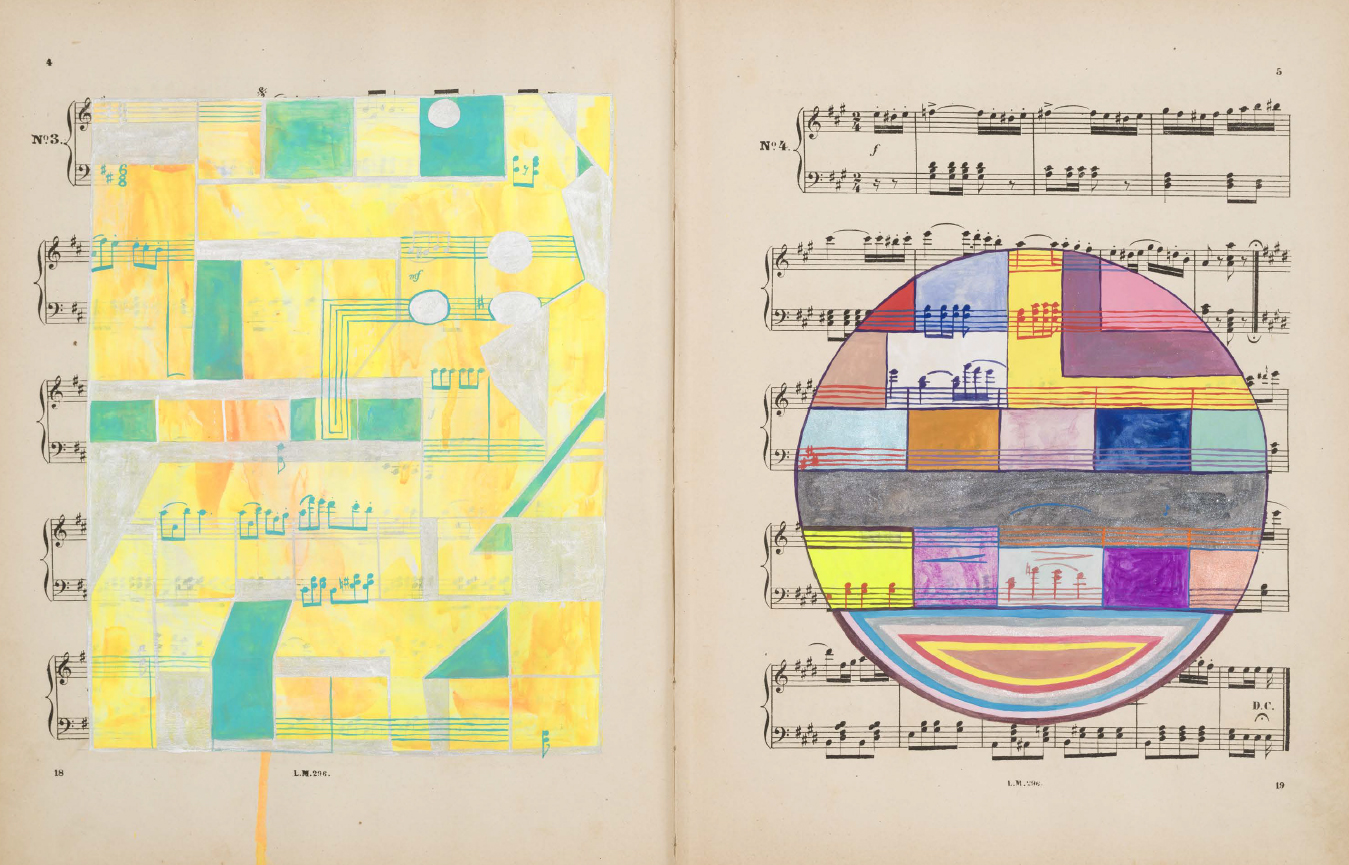 4
Nº3.
6
8
mf
18
L.M.296.
5
Nº4.
2
4
f
2
4
D.C.
L.M.296.
19